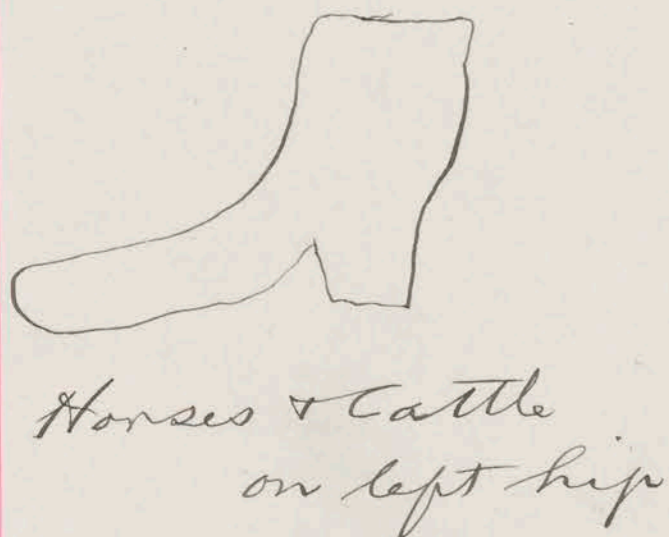 Horses & Cattle
on left hip